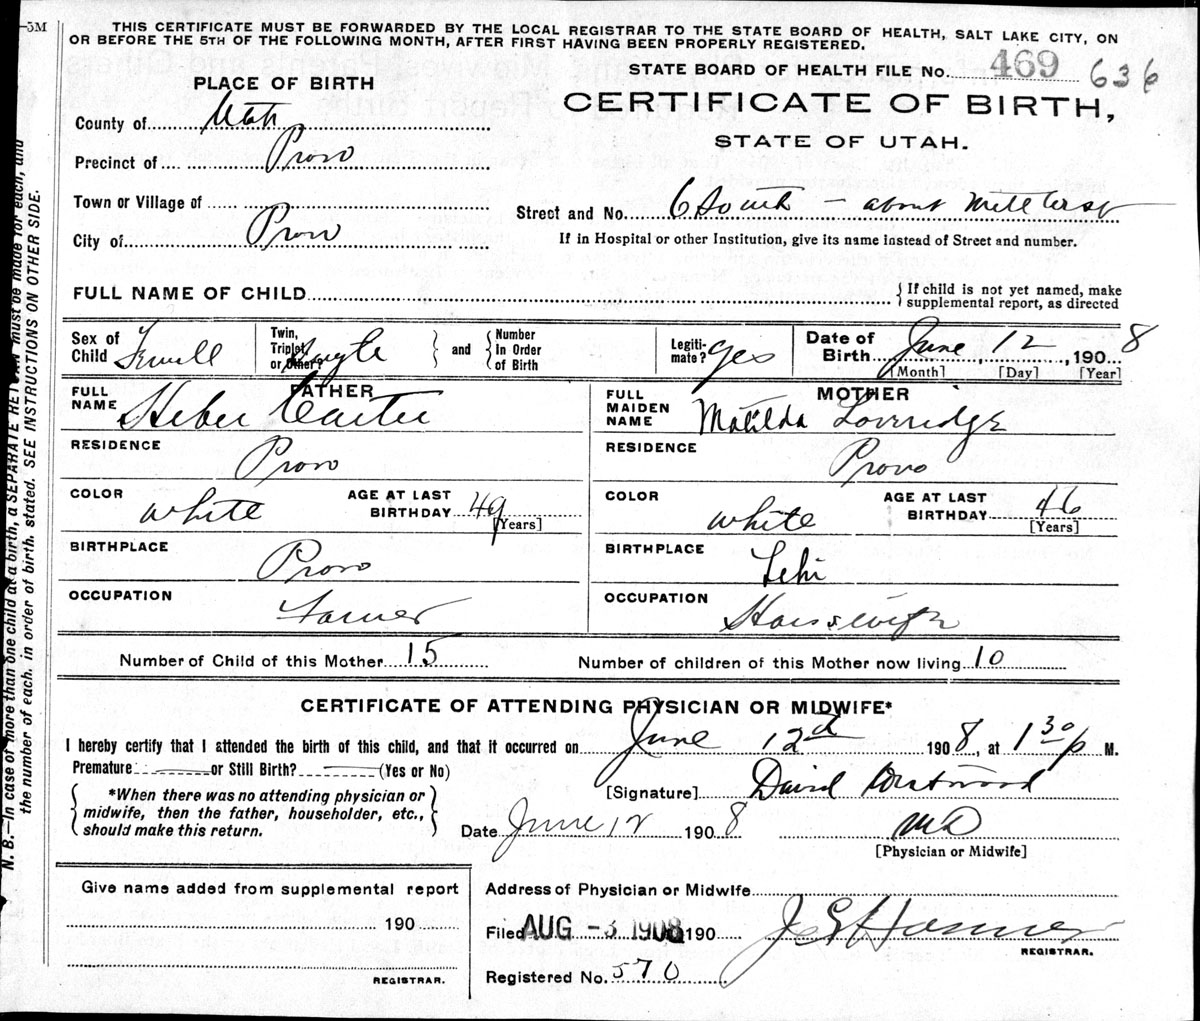 -5M
THIS CERTIFICATE MUST BE FORWARDED BY THE LOCAL REGISTRAR TO THE STATE BOARD OF HEALTH, SALT LAKE CITY, ON
OR BEFORE THE 5TH OF THE FOLLOWING MONTH, AFTER FIRST HAVING BEEN PROPERLY REGISTERED.
STATE BOARD OF HEALTH FILE No. 469 636
PLACE OF BIRTH
CERTIFICATE OF BIRTH,
STATE OF UTAH.
County of Utah
Precinct of Provo
Town or Village of
City of Provo
Street and No. 6 South - about Mill
If in Hospital or other Institution, give its name instead of Street and number.
FULL NAME OF CHILD
{ If child is not yet named, make
supplemental report, as directed
Sex of Child Female
Twin, Triplet, or Other? Single
and { Number In Order of Birth
Legiti-mate? yes
Date of Birth June 12, 1908
[Month] [Day] [Year]
FATHER
FULL NAME Heber Carter
RESIDENCE Provo
COLOR white
AGE AT LAST BIRTHDAY 49 [Years]
BIRTHPLACE Provo
OCCUPATION Farmer
MOTHER
FULL MAIDEN NAME Matilda Loveridge
RESIDENCE Provo
COLOR white
AGE AT LAST BIRTHDAY 46 [Years]
BIRTHPLACE Lehi
OCCUPATION Housewife
Number of Child of this Mother 15
Number of children of this Mother now living 10
CERTIFICATE OF ATTENDING PHYSICIAN OR MIDWIFE*
I hereby certify that I attended the birth of this child, and that it occurred on June 12d 1908, at 1 30 p M.
Premature or Still Birth? (Yes or No)
{ *When there was no attending physician or
midwife, then the father, householder, etc.,
should make this return. }
[Signature] David Westwood
Date June 12 1908
MD
[Physician or Midwife]
Give name added from supplemental report
190
REGISTRAR.
Address of Physician or Midwife
Filed AUG -3 1908 190
REGISTRAR.
Registered No. 570
N. B.—In case of more than one child at a birth, a SEPARATE RETURN must be made for each, and
the number of each, in order of birth, stated. SEE INSTRUCTIONS ON OTHER SIDE.